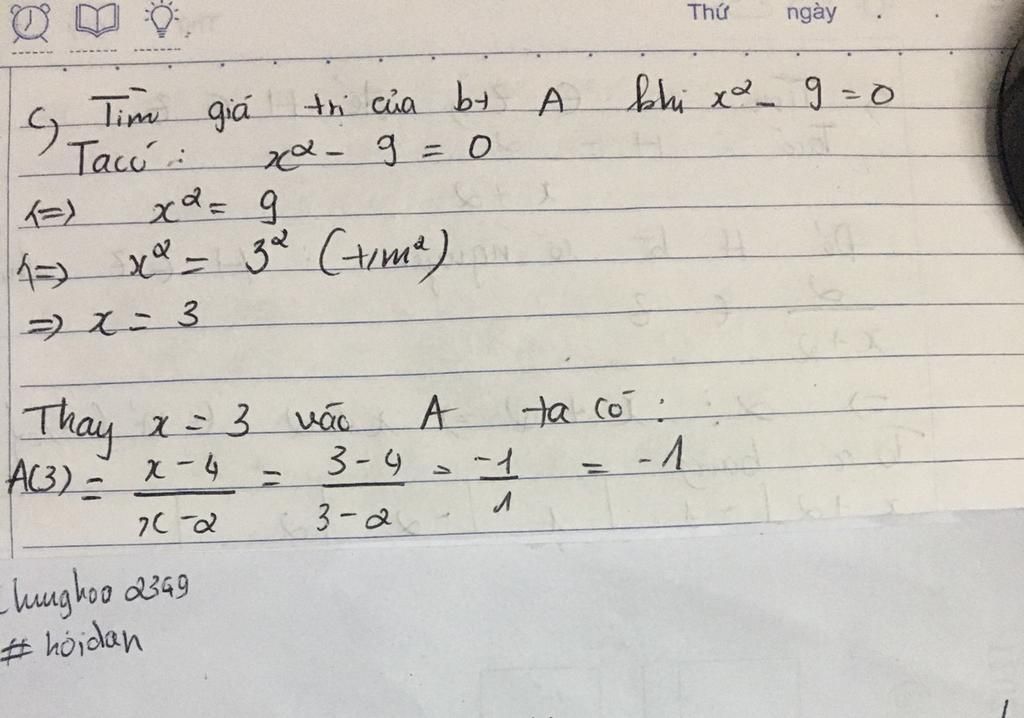 Thứ ngày . .
c) Tìm giá trị của bt A khi x² - 9 = 0
Ta có: x² - 9 = 0
<=> x² = 9
<=> x² = 3² (t/m²)
=> x = 3
Thay x = 3 vào A ta có:
A(3) = x - 4 / x - 2 = 3 - 4 / 3 - 2 = -1 / 1 = -1
Chunghoo 2349
# hỏidan